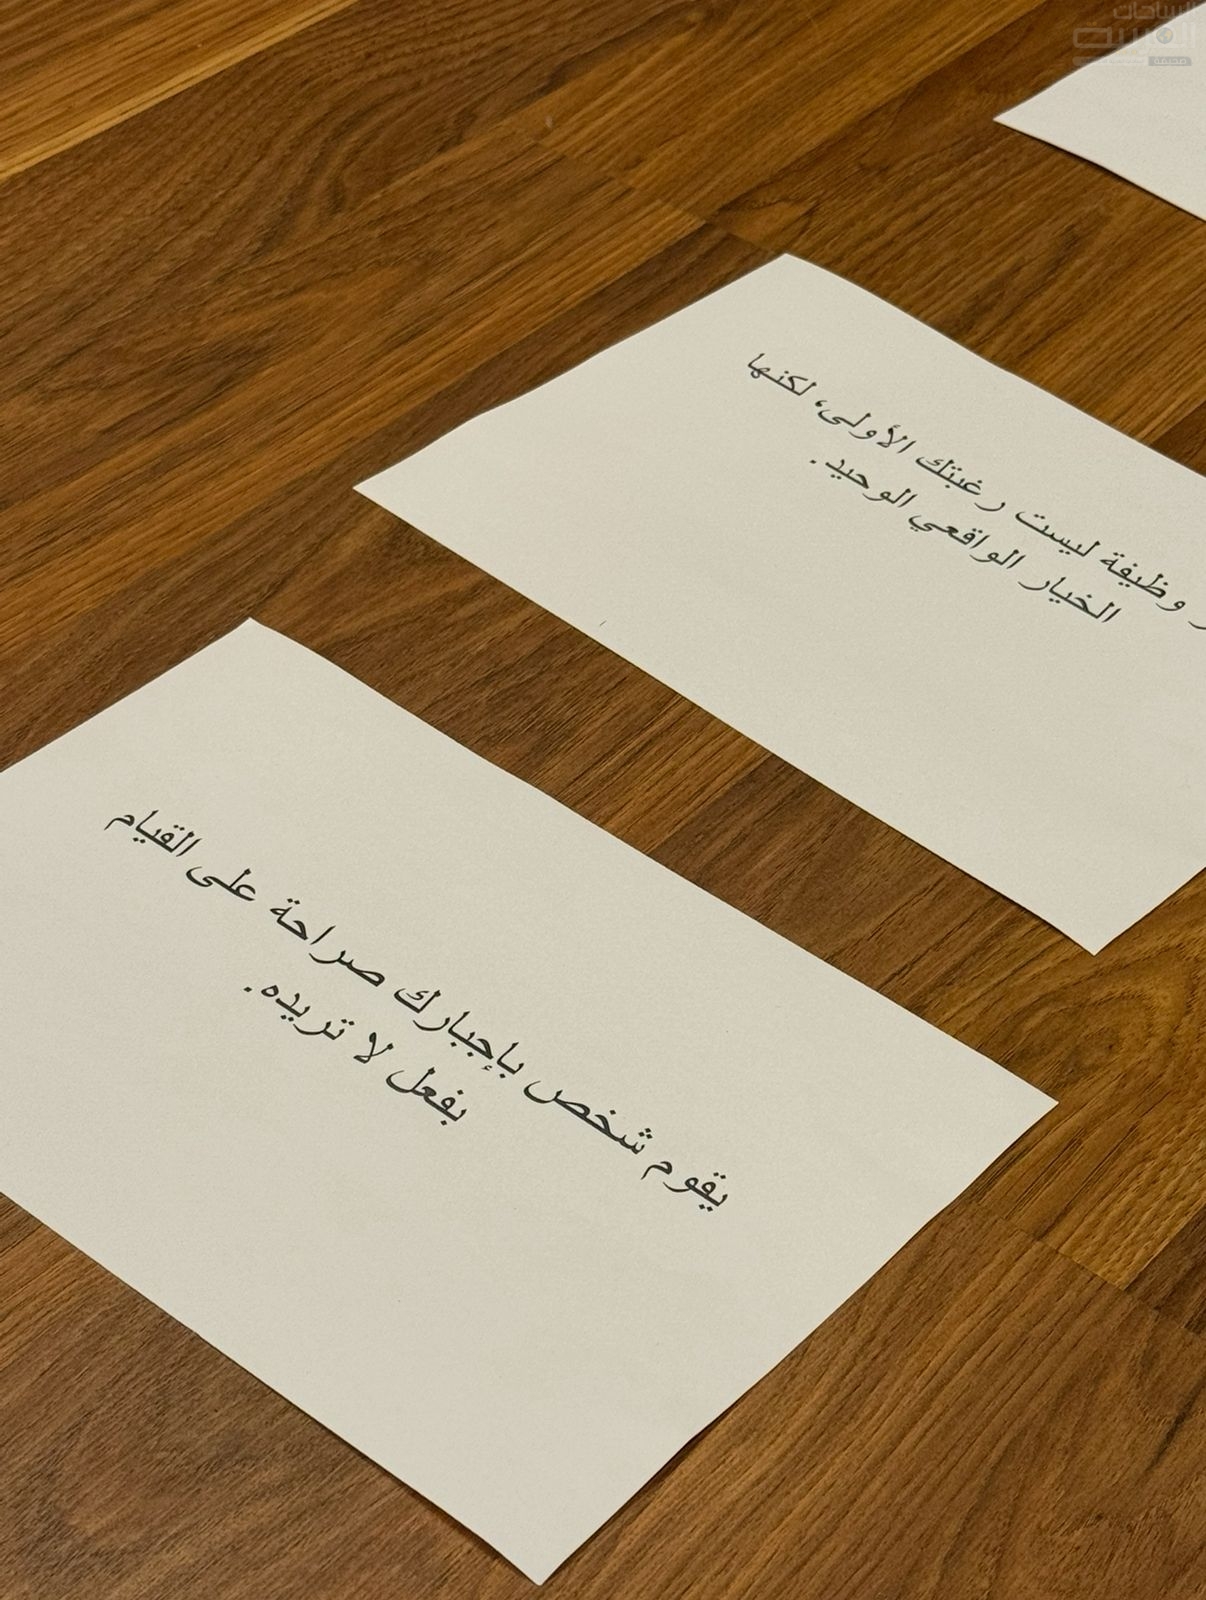 وظيفة ليست رغبتك الأولى، لكنها
الخيار الواقعي الوحيد.
يقوم شخص بإجبارك صراحة على القيام
بفعل لا تريده.